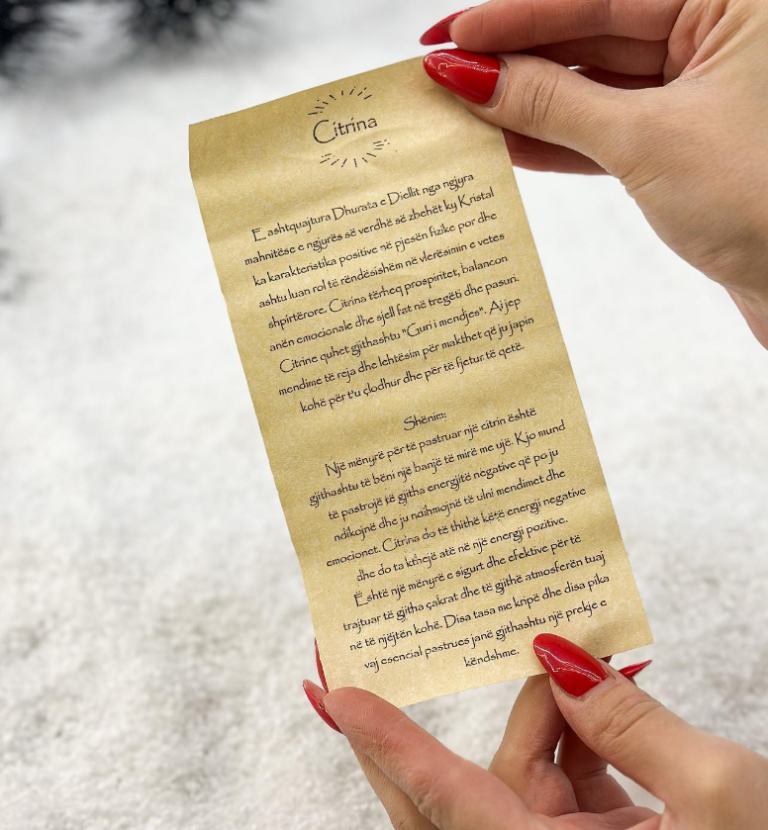 Citrina
E ashtquajtura Dhurata e Diellit nga ngjyra
mahnitëse e ngjurës së verdhë së zbehët ky Kristal
ka karakteristika positive në pjesën fizike por dhe
ashtu luan rol të rëndësishëm në vlerësimin e vetes
shpirtërore. Citrina tërheq prospiritet, balancon
anën emocionale dhe sjell fat në tregëti dhe pasuri.
Citrine quhet gjithashtu "Guri i mendjes". Ai jep
mendime të reja dhe lehtësim për makthet që ju japin
kohë për t'u çlodhur dhe për të fjetur të qetë.
Shënim:
Një mënyrë për të pastruar një citrin është
gjithashtu të bëni një banjë të mirë me ujë. Kjo mund
të pastrojë të gjitha energjitë negative që po ju
ndikojnë dhe ju ndihmojnë të ulni mendimet dhe
emocionet. Citrina do të thithë këtë energji negative
dhe do ta kthejë atë në një energji pozitive.
Është një mënyrë e sigurt dhe efektive për të
trajtuar të gjitha çakrat dhe të gjithë atmosferën tuaj
në të njëjtën kohë. Disa tasa me kripë dhe disa pika
vaj esencial pastrues janë gjithashtu një prekje e
këndshme.